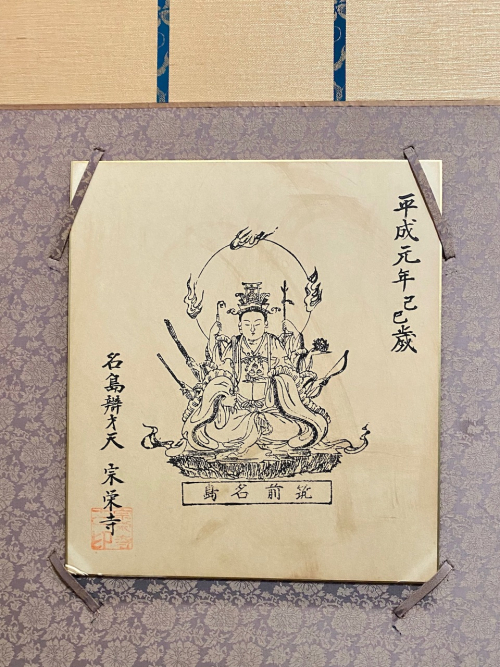 平成元年己巳歳
筑前名島
名島辨才天 宗栄寺